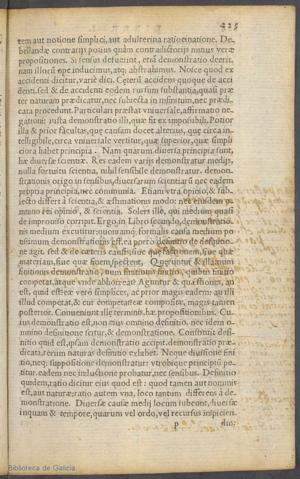 425
tem aut notione simplici, aut adulterina ratiocinatione. De-
bellandæ contrarijs potius quàm contradictorijs minus veræ
propositiones. Si sensus defuerint, etiã demonstratio deerit.
nam illorũ ope inducimus, atq; abstrahimus. Nosce quod ex
accidenti dicitur, varie dici. Ceterũ accidens quoque de acci
denti. sed & de accidenti eodem rursum substantia, quasi præ
ter naturam prædicatur, nec subiecta in infinitum, nec prædi-
cata procedunt. Particulari præstat vniuersale, affirmatio ne-
gationi: iusta demonstratio illi, quæ fit ex impossibili. Potior
illa & prior facultas, quę causam docet alterius, quę circa in-
telligibile, circa vniuersale vertitur, quæ superior, quæ simpli
ciora habet principia. Nam quarum diuersa principia sunt,
hæ diuersæ scientiæ. Res eadem varijs demonstratur medijs,
nulla fortuitu scientia, nihil sensibile demonstratur. demon-
strationis origo in sensibus, diuersarum scientiarũ nec eadem
propria principia, nec communia. Etiam vtra opinio, & sub-
iecto differt à scientia, & æstimationis modo: nec eiusdem
rei opinio, & scientia. Solers ille, qui medium quasi
de improuiso corripit. Ergo, in Libro secundo, demonstratio-
nis medium excutitur: quoniam formalis causa medium po
tissimum demonstrationis est. ea porro definitio
ne agit. sed & de cæteris causis
materias, siue quæ finem Queruntur &
finitiones demonstratio, num finitionis finitio, quibus finitio
competat, atque vnde abhorreat? Aguntur & quæstiones, an
est, quid est: eæ vero simplices, ac prior magis eadem: an illi
illud competat, & cur competat: eæ compositæ, magis tamen
posterior. Conueniunt illę terminis, hæ propositionibus. Cu-
ius demonstratio est, non eius omnino definitio. nec idem o-
mnino definitione scitur, & demonstratione. Constituta defi-
nitio quid est, ipsam demonstratio accipit. demonstratio præ-
dicata, rerum naturas definitio exhibet. Neque diuisione fini
tio, neq; suppositione demonstratur: vtrobique principiũ pe-
titur. eadem nec inductione probatur, nec sensibus. Definitio
quidem, ratio dicitur eius quod est: quod tamen aut nominis
est, aut naturæ: ratio autem vna, loco tantum differens à de-
monstratione. Diuersæ causæ medij locum subeunt, diuersæ
inquam & tempore, quarum vel ordo, vel recursus inspicien.
p
dus:
Biblioteca de Galicia